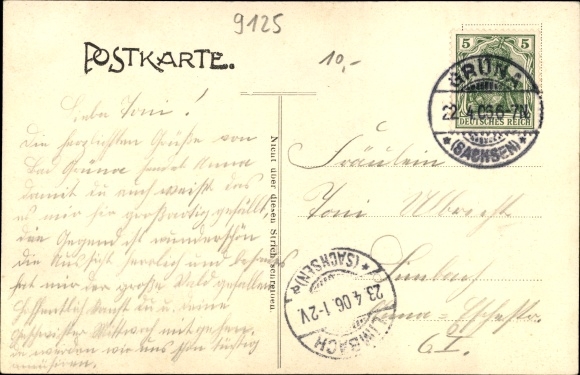 9125
10,-
POSTKARTE.
5 5
DEUTSCHES REICH
GRÜNA
22.4.06 6-7N
*(SACHSEN)*
Liebe Toni!
Die herzlichsten Grüße von
Bad Grüna sendet Anna
damit du auch weißt das
es mir hier großartig gefällt,
die Gegend ist wunderschön
die Aussicht herrlich und
hat mir der große Wald gefallen.
Hoffentlich kannst du u. deine
Geschwister Mittwoch mit gehen.
da werden wir uns schon tüchtig
amüsieren.
Nicht über diesen Strich schreiben.
Fräulein
Toni
Limbach
6 I.
LIMBACH
23 4 06 1-2V
*(SACHSEN)a